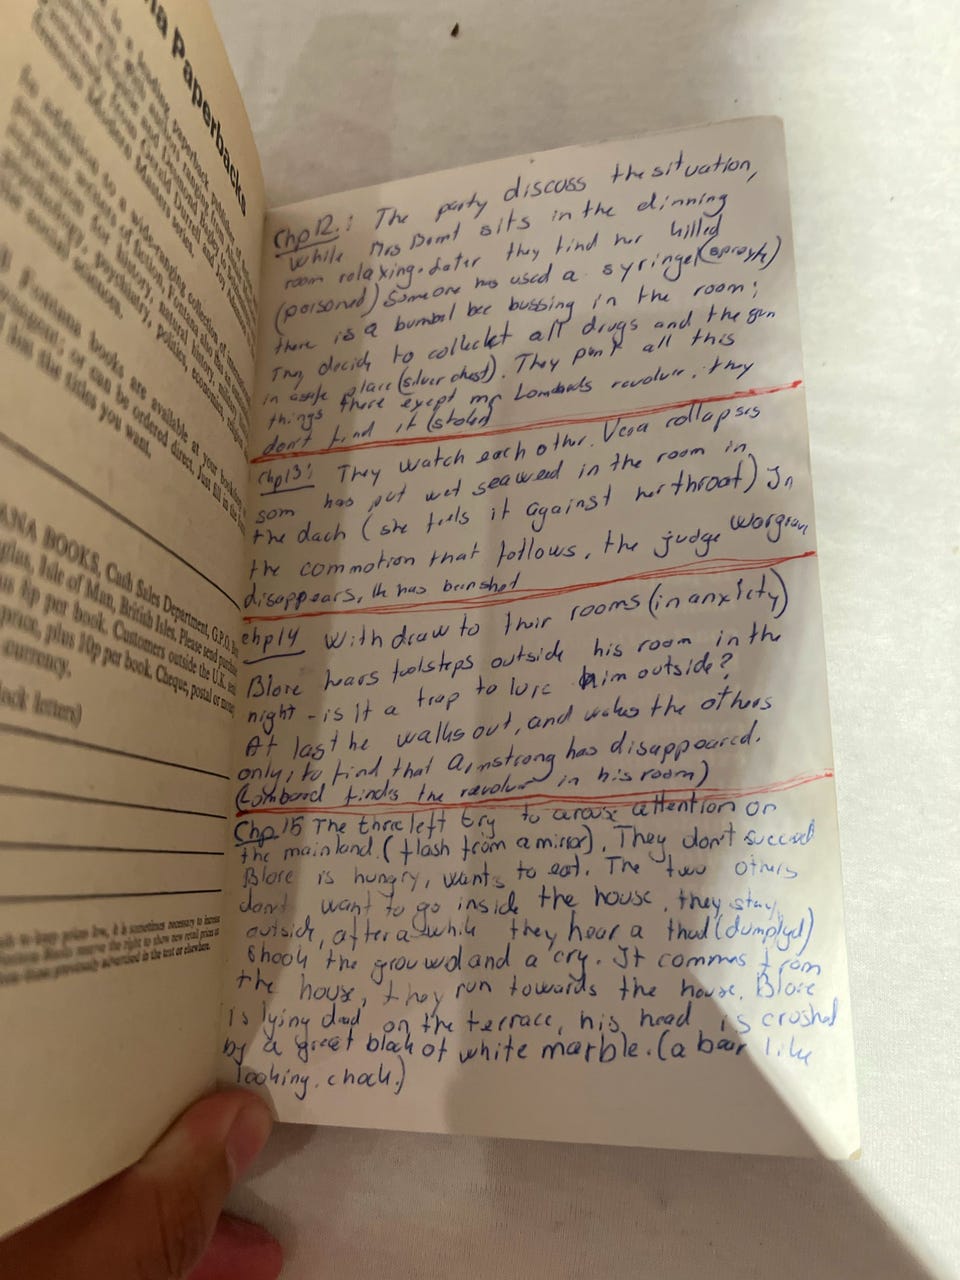 na Paperbacks
is a leading paperback publisher of
Gerald Durrell and Joy
Modern Masters series.
In addition to a wide-ranging collection of international
fiction, Fontana also has an
history, natural history, military
psychology, psychiatry, politics, economics,
the social sciences.
Fontana books are available at your bookshop or
newsagent; or can be ordered direct. Just fill in the
and list the titles you want.
ANA BOOKS, Cash Sales Department, G.P.O. Box
Douglas, Isle of Man, British Isles. Please send purchase
plus 8p per book. Customers outside the U.K. send
price, plus 10p per book. Cheque, postal or money
currency.
block letters)
to keep prices low, it is sometimes necessary to increase
reserve the right to show new retail prices on
those previously advertised in the text or elsewhere.
Chp12.: The party discuss the situation,
while Mrs Bernt sits in the dinning
room relaxing. Later they find her killed
(poisoned) Someone has used a syringe (sprøyte)
there is a bumbel bee bussing in the room;
They decide to collecket all drugs and the gun
in a safe place (silver chest). They pant all this
things there exept mr Lombards revolver, they
don't find it (stolen)
Chp13: They watch each other. Vera collapses
som has put wet seaweed in the room in
the dach (she feels it against her throat) In
the commotion that follows, the judge Worgrave
disappears, He has been shot
chp14 Withdraw to their rooms (in anxiety)
Blore hears footsteps outside his room in the
night - is it a trap to lure him outside?
At last he walks out, and wakes the others
only, to find that Armstrong has disappeared.
(Lombard finds the revolver in his room)
Chp.15 The three left try to arouse attention on
the mainland. (flash from a mirror). They don't succeed
Blore is hungry, wants to eat. The two others
don't want to go inside the house, they stay
outside, after a while they hear a thud (dumplyd)
shook the grouwd and a cry. It commes from
the house, they run towards the house. Blore
is lying dead on the terrace, his head is croshed
by a great block of white marble. (a bear like
looking. chock.)